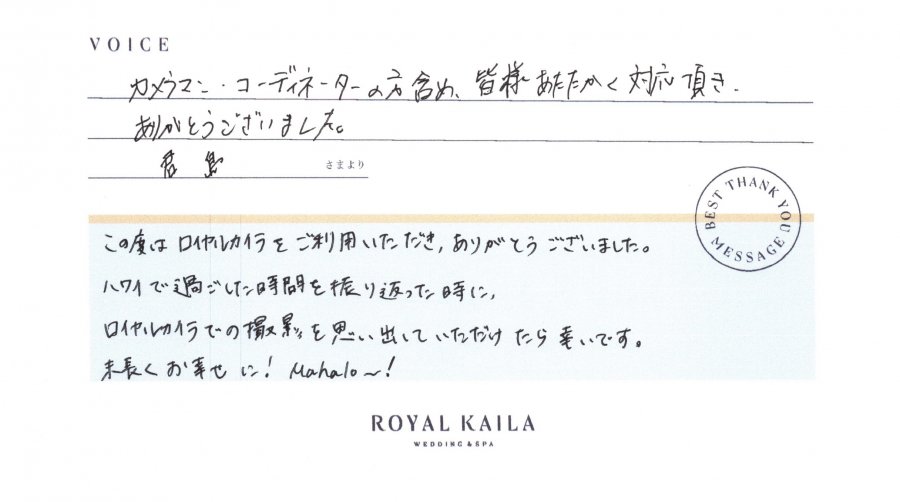 VOICE
カメラマン・コーディネーターの方含め、皆様あたたかく対応頂き、
ありがとうございました。
君島 さまより
BEST THANK YOU MESSAGE
この度はロイヤルカイラをご利用いただき、ありがとうございました。
ハワイで過ごした時間を振り返った時に、
ロイヤルカイラでの撮影を思い出していただけたら幸いです。
末長くお幸せに！Mahalo〜！
ROYAL KAILA
WEDDING & SPA